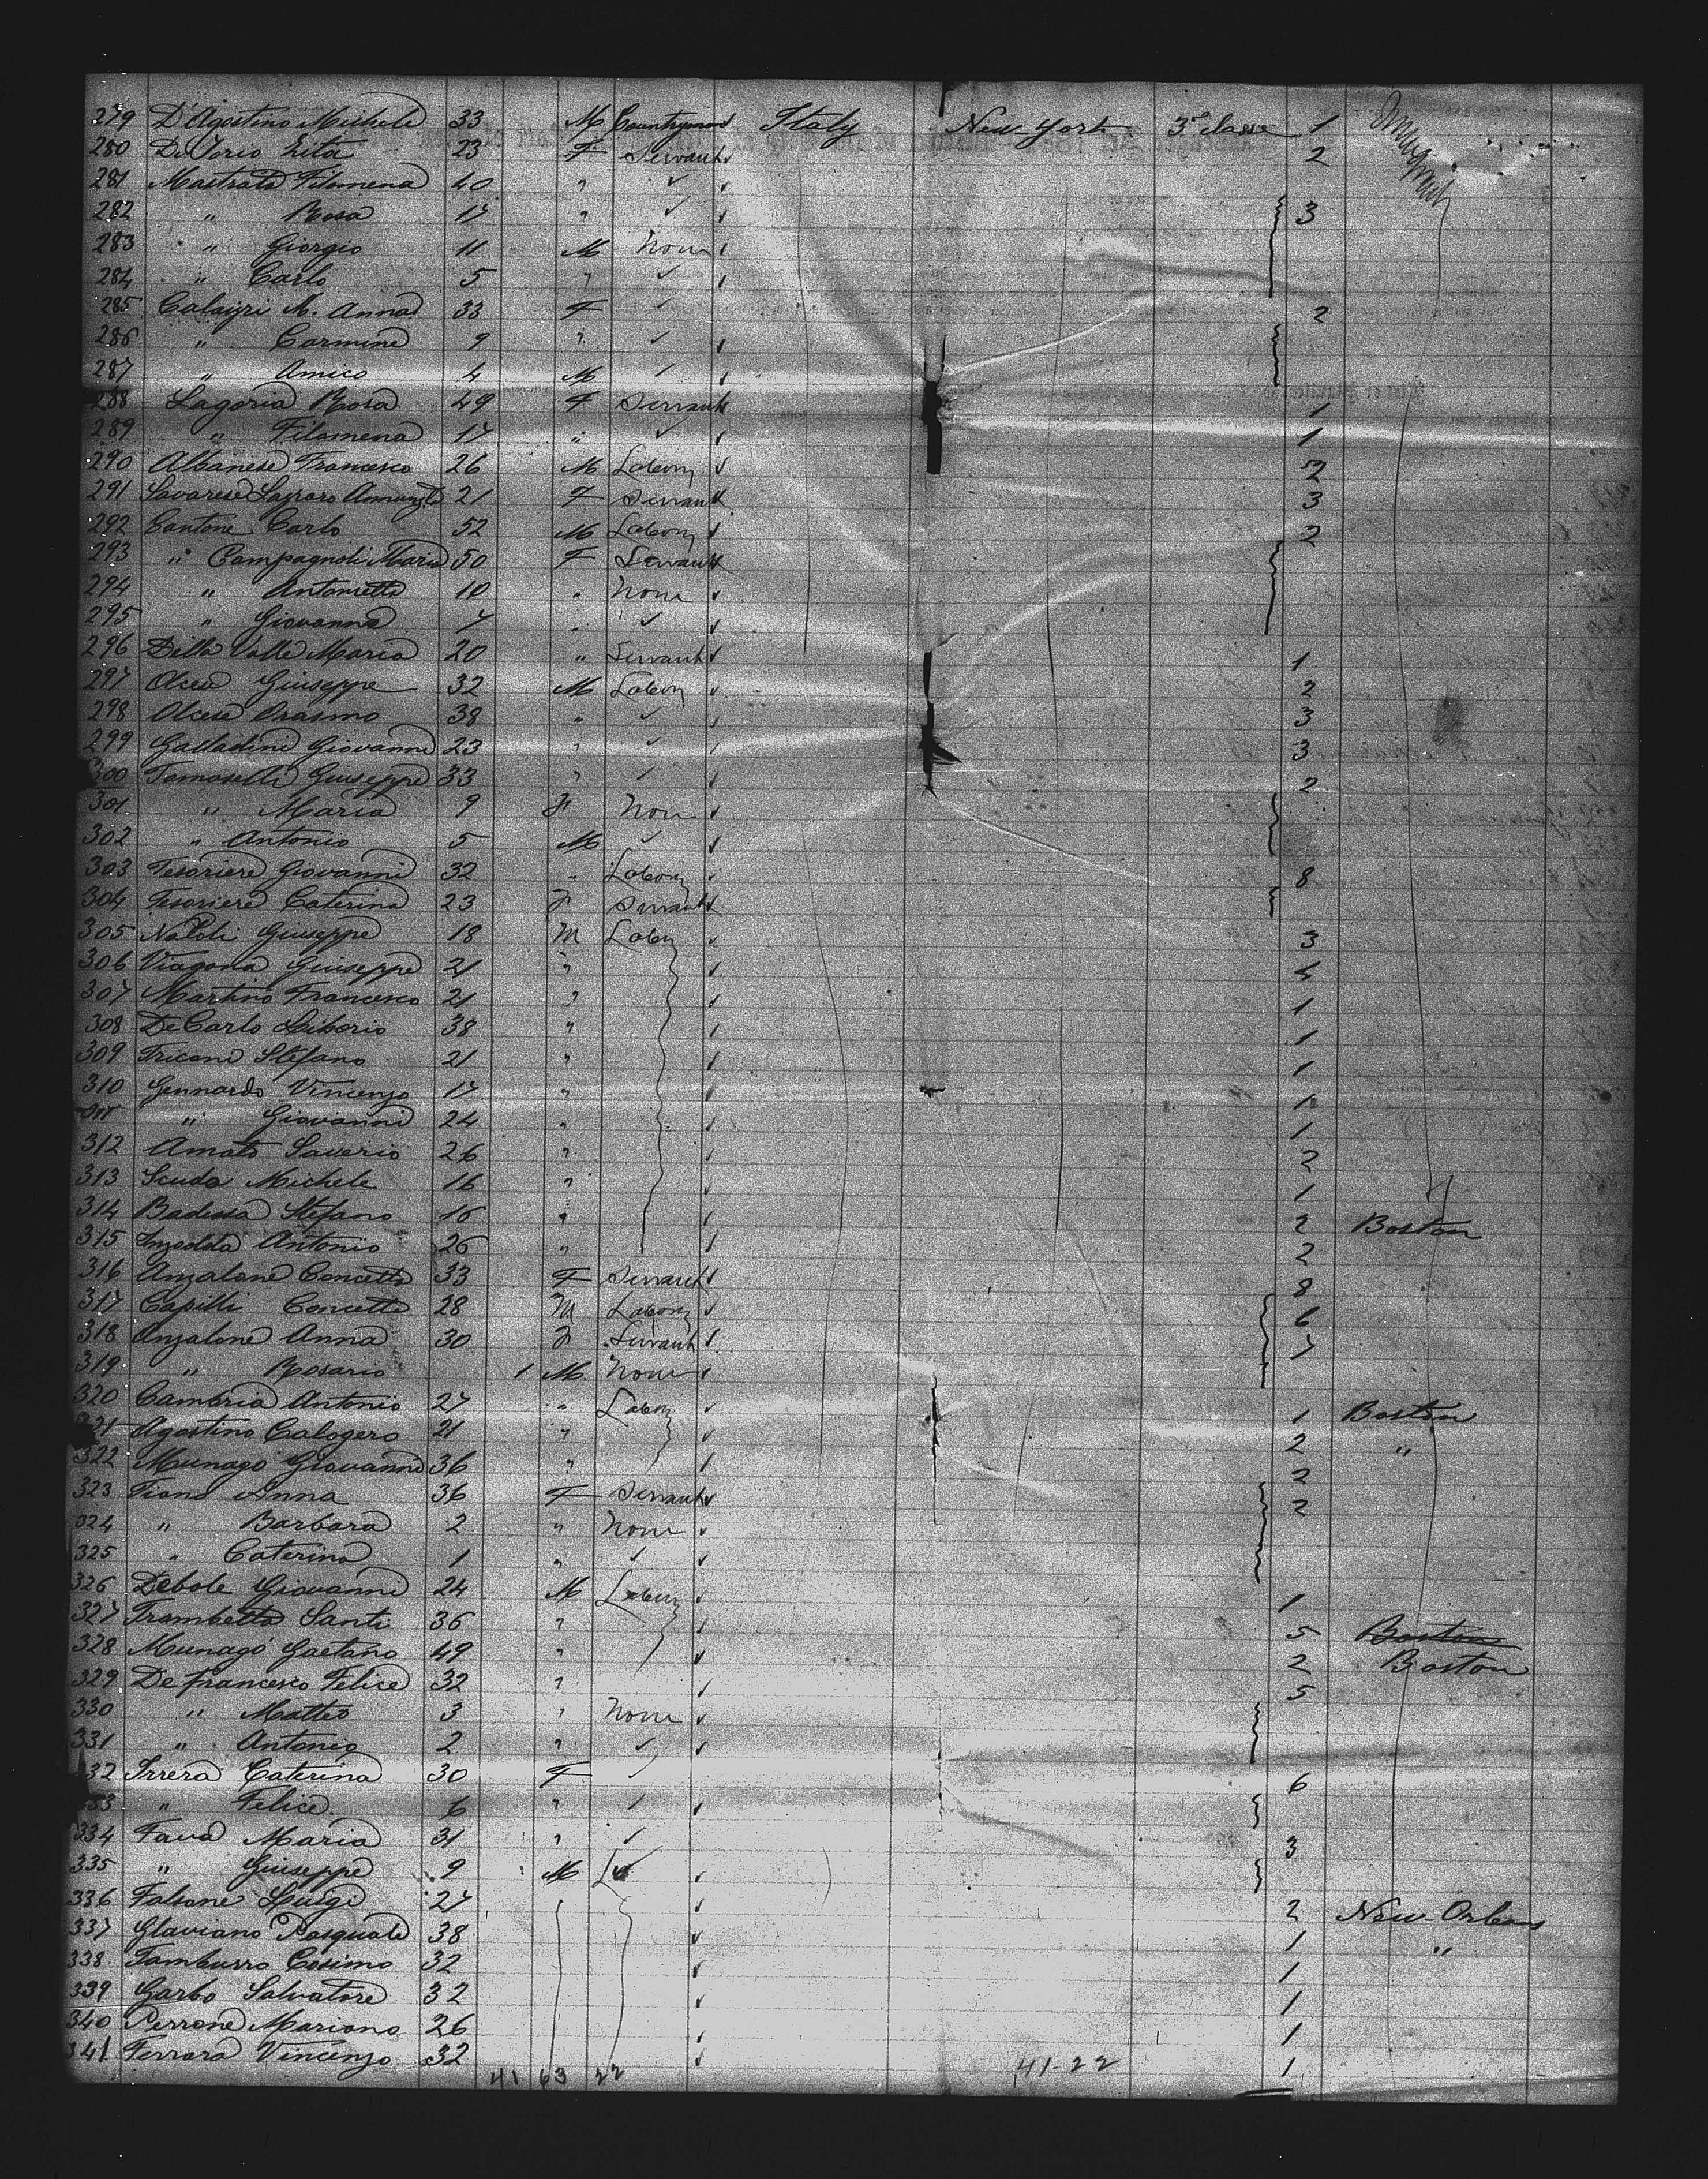 279 D'Agostino Michele 33 M Countryman Italy New York 3d classe 1
280 De Iorio Rita 23 F Servant 2
281 Mastrata Filomena 40 " ✓
282 " Rosa 17 " ✓ 3
283 " Giorgio 11 M None
284 " Carlo 5 " ✓
285 M. Anna 33 F ✓ 2
286 " Carmine 9 " ✓
287 " Amico 4 M ✓
288 Lagoria Rosa 49 F Servant 1
289 " Filomena 17 " ✓ 1
290 Albanese Francesco 26 M Labory 2
291 Savarese Lazzaro 21 F Servant 3
292 Santone Carlo 52 M Labory 2
293 " Campagnoli Maria 50 F Servant
294 " Antonietta 10 " None
295 " Giovanna 7 " ✓
296 Della Valle Maria 20 " Servant 1
297 Olcese Giuseppe 32 M Labory 2
298 Olcese Orasmo 38 " ✓ 3
299 Galladini Giovanni 23 " ✓ 3
300 Tomaselli Giuseppe 33 " ✓ 2
301 " Maria 9 F None
302 " Antonio 5 M ✓
303 Tesoriere Giovanni 32 " Labory 8
304 Tesoriere Caterina 23 F Servant
305 Natoli Giuseppe 18 M Labory 3
306 Viagona Giuseppe 21 " 4
307 Martino Francesco 21 " 1
308 De Carlo Liborio 38 " 1
309 Tricone Stefano 21 " 1
310 Gennardo Vincenzo 17 " 1
311 " Giovanni 24 " 1
312 Amato Saverio 26 " 2
313 Scuda Michele 16 " 1
314 Badessa Stefano 16 " 2 Boston
315 Antonio 26 " 2
316 Anzalone Concetta 33 F Servant 8
317 Capilli Concetta 28 M Labory 6
318 Anzalone Anna 30 F Servant 7
319 " Rosario 1 M. None
320 Cambria Antonio 27 " Labory 1 Boston
321 Agostino Calogero 21 " 2 "
322 Munagò Giovanni 36 " 2
323 Fiano Anna 36 F Servant 2
324 " Barbara 2 " None
325 " Caterina 1 " ✓
326 Debole Giovanni 24 M Labory 1
327 Trambetta Santi 36 " 5 Boston
328 Munagò Gaetano 49 " 2 Boston
329 De francesco Felice 32 " 5
330 " Matteo 3 " None
331 " Antonio 2 " ✓
332 Irrera Caterina 30 F ✓ 6
333 " Felice 6 " ✓
334 Fava Maria 31 " ✓ 3
335 " Giuseppe 9 M
336 Falsone Luigi 27 2 New Orleans
337 Glaviano Pasquale 38 1 "
338 Tamburro Cosimo 32 1
339 Garbo Salvatore 32 1
340 Perrone Mariano 26 1
341 Ferrara Vincenzo 32 1
41 63 22 41-22